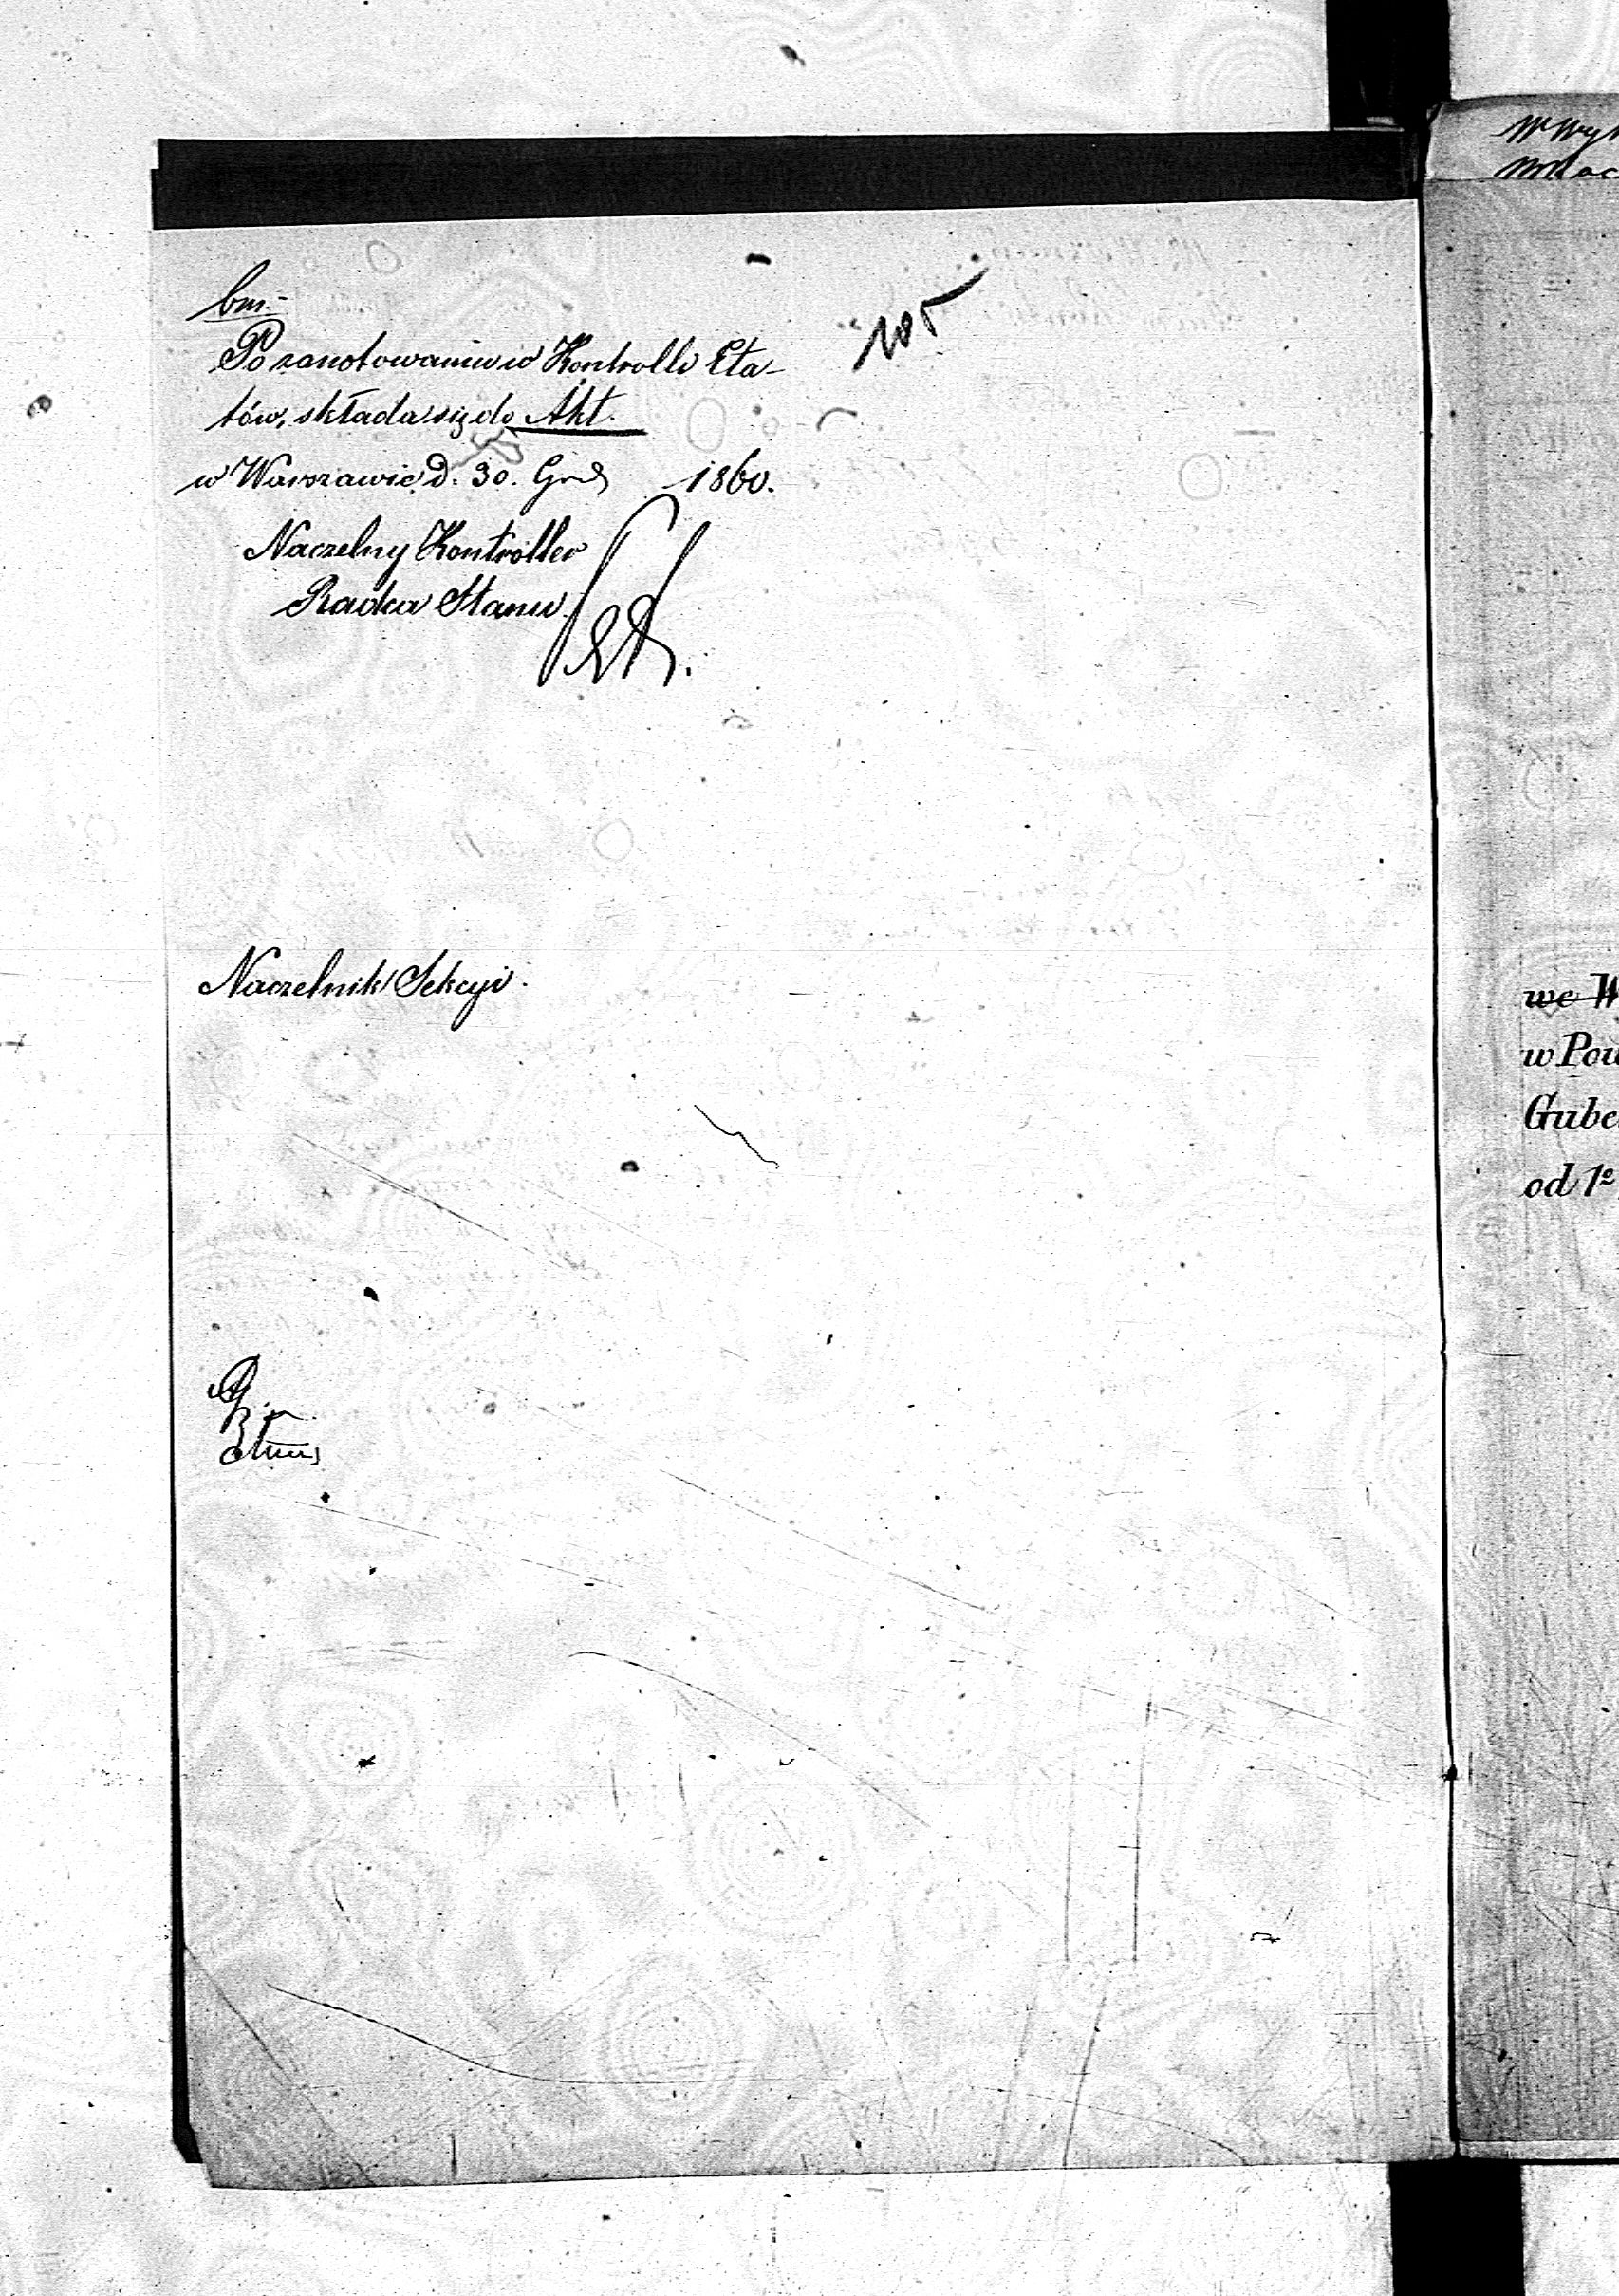 bm.-
105
Po zanotowaniu w Kontrolli Eta-
tów, składa się do Akt.
w Warszawie d. 30. Grud 1860.
Naczelny Kontroller
Radca Stanu
Naczelnik Sekcyi.
we W
w Pow
Gube
od 1º